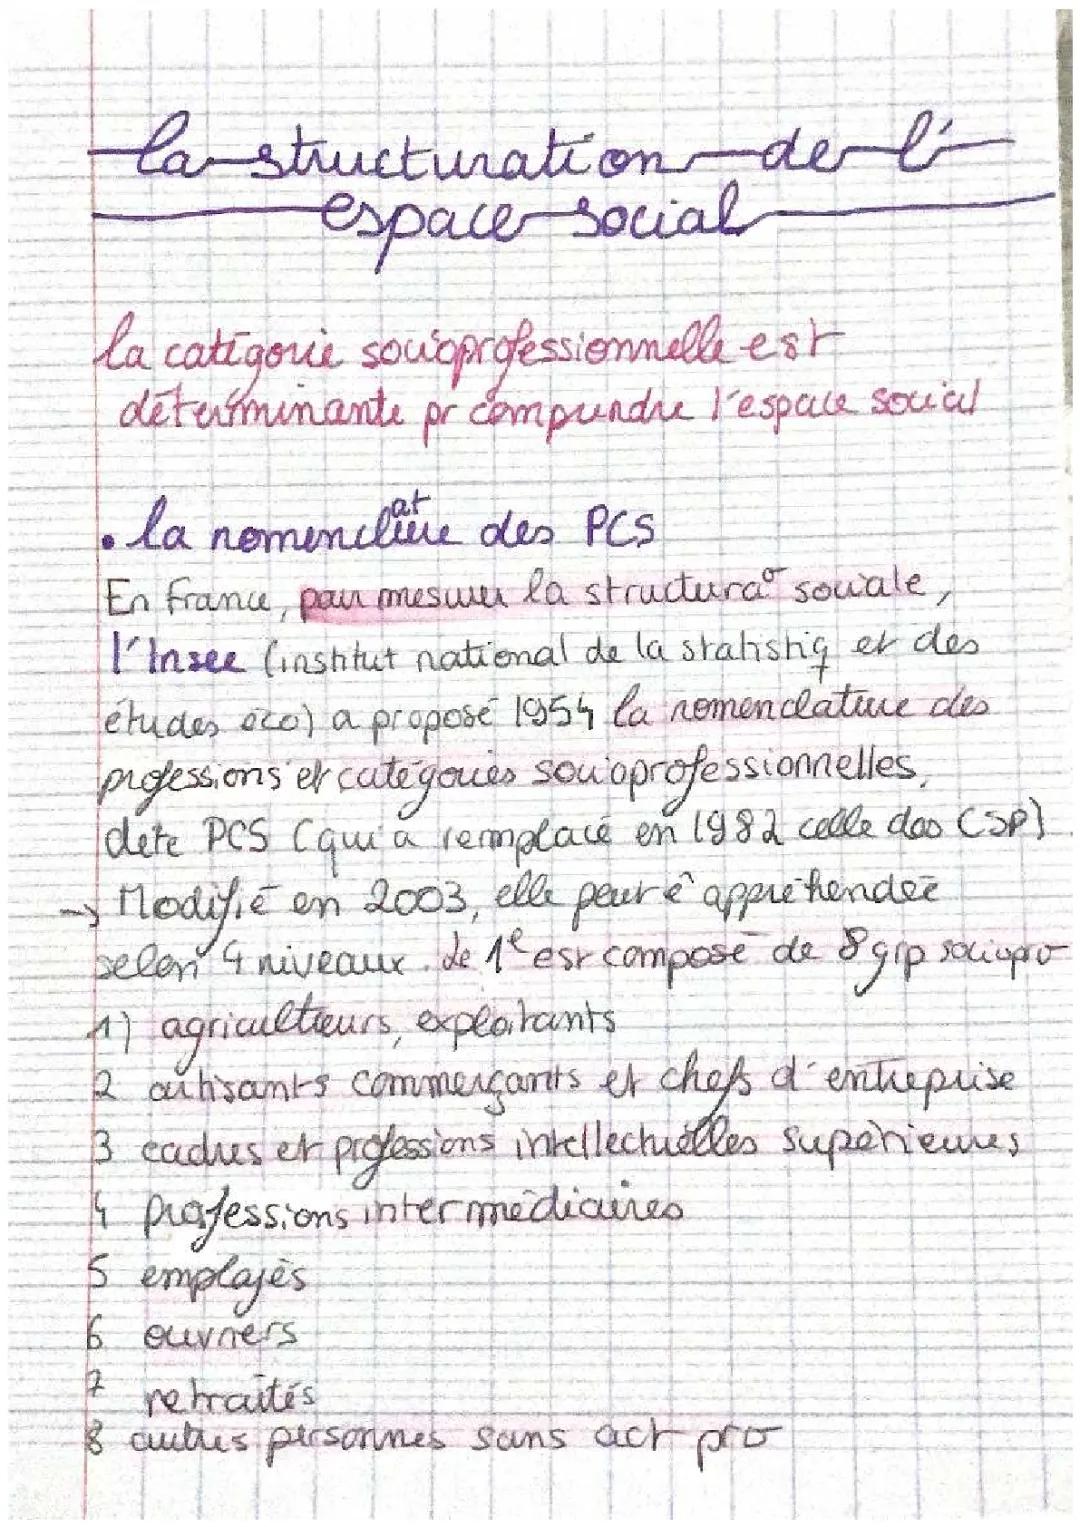 la structuration de l'
espace social
la catégorie socioprofessionnelle est
déterminante pr comprendre l'espace social
• la nomenclature des PCS
En France, pour mesurer la structura° sociale,
l'Insee (institut national de la statistiq et des
études éco) a proposé 1954 la nomenclature des
professions et catégories socioprofessionnelles,
dite PCS (qui a remplacé en 1982 celle des CSP)
→ Modifié en 2003, elle peut ê appréhendée
selon 4 niveaux. Le 1e est composé de 8 grp sociopro
1) agriculteurs, exploitants
2 artisants commerçants et chefs d'entreprise
3 cadres et professions intellectuelles supérieures
4 professions intermédiaires
5 employés
6 ouvriers
7 retraités
8 autres personnes sans act pro